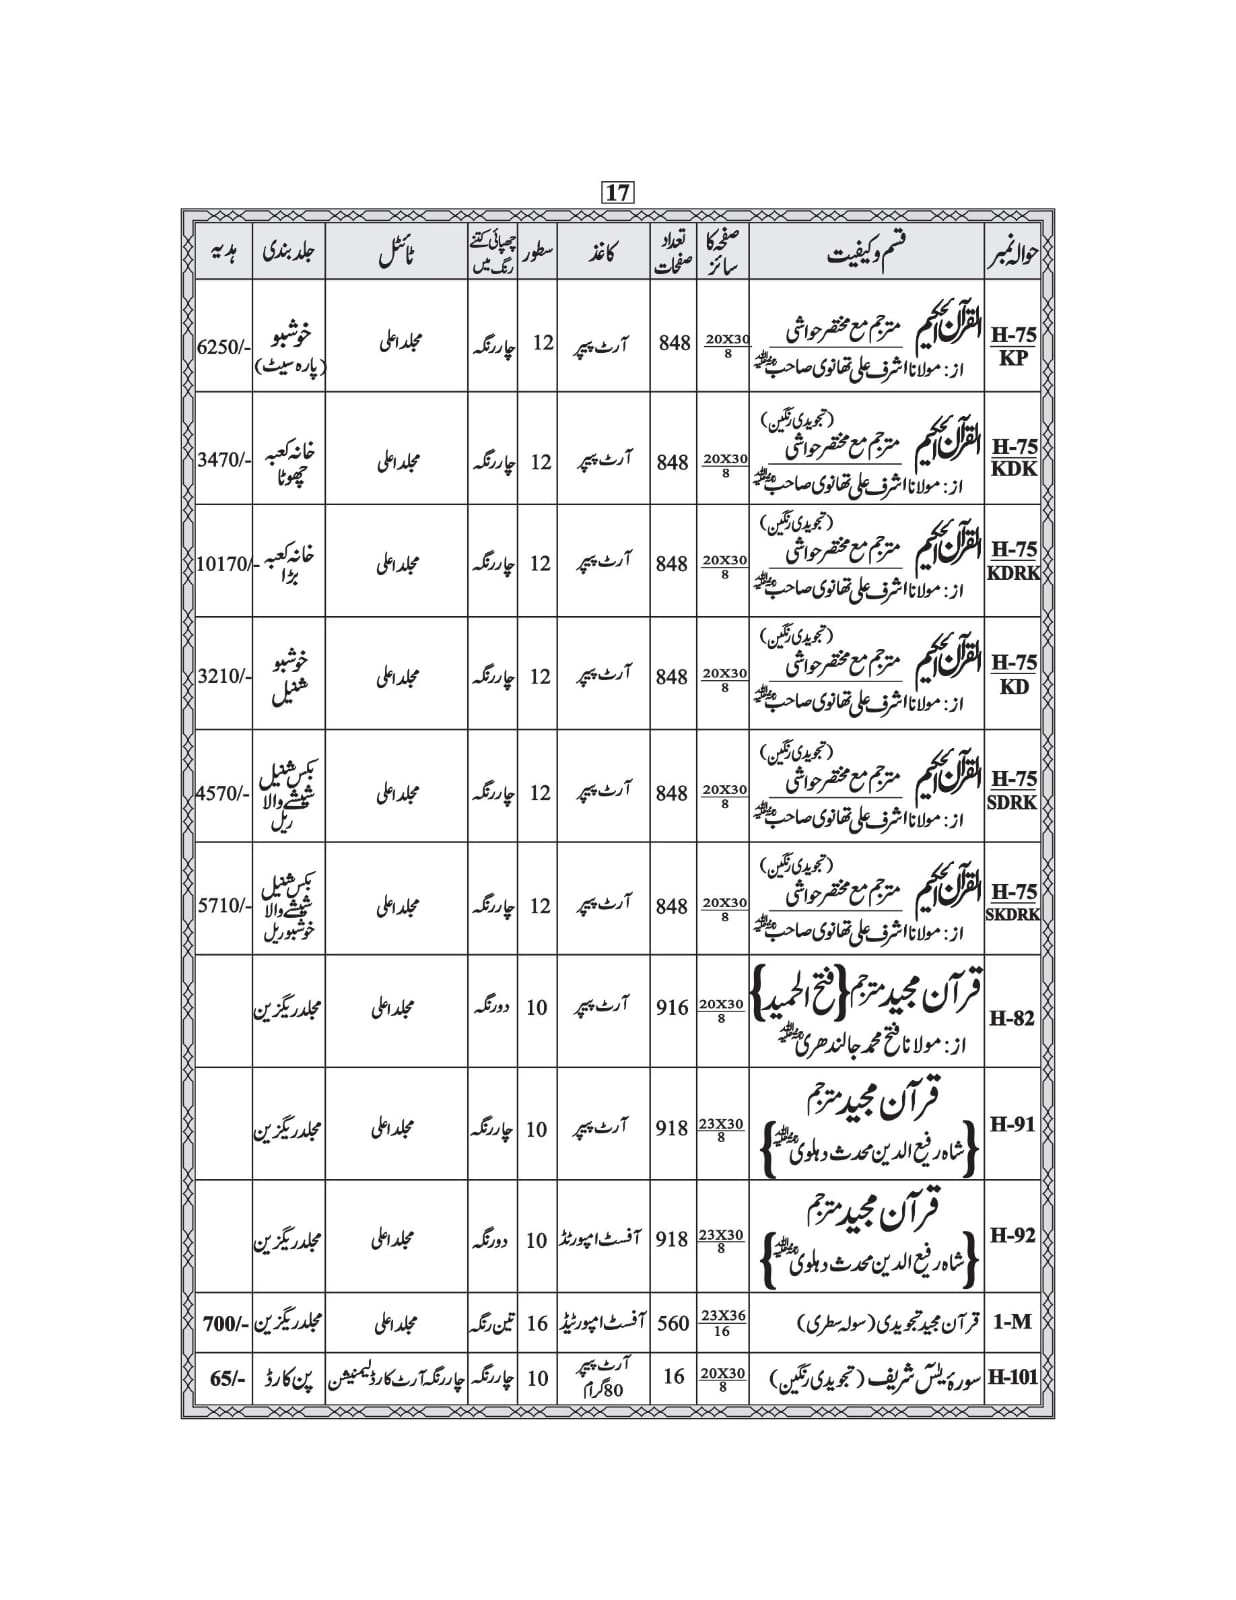 17
حوالہ نمبر قسم و کیفیت صفحہ کا سائز تعداد صفحات کاغذ سطور چھپائی کتنے رنگ میں ٹائٹل جلد بندی ہدیہ
H-75 KP القرآن الحکیم مترجم مع مختصر حواشی از: مولانا اشرف علی تھانوی صاحبؒ 20X30 8 848 آرٹ پیپر 12 چار رنگہ مجلد اعلی خوشبو (پارہ سیٹ) 6250/-
H-75 KDK القرآن الحکیم (تجویدی رنگین) مترجم مع مختصر حواشی از: مولانا اشرف علی تھانوی صاحبؒ 20X30 8 848 آرٹ پیپر 12 چار رنگہ مجلد اعلی خانہ کعبہ چھوٹا 3470/-
H-75 KDRK القرآن الحکیم (تجویدی رنگین) مترجم مع مختصر حواشی از: مولانا اشرف علی تھانوی صاحبؒ 20X30 8 848 آرٹ پیپر 12 چار رنگہ مجلد اعلی خانہ کعبہ بڑا 10170/-
H-75 KD القرآن الحکیم (تجویدی رنگین) مترجم مع مختصر حواشی از: مولانا اشرف علی تھانوی صاحبؒ 20X30 8 848 آرٹ پیپر 12 چار رنگہ مجلد اعلی خوشبو شنیل 3210/-
H-75 SDRK القرآن الحکیم (تجویدی رنگین) مترجم مع مختصر حواشی از: مولانا اشرف علی تھانوی صاحبؒ 20X30 8 848 آرٹ پیپر 12 چار رنگہ مجلد اعلی بکس شنیل شیشے والا ریل 4570/-
H-75 SKDRK القرآن الحکیم (تجویدی رنگین) مترجم مع مختصر حواشی از: مولانا اشرف علی تھانوی صاحبؒ 20X30 8 848 آرٹ پیپر 12 چار رنگہ مجلد اعلی بکس شنیل شیشے والا خوشبو ریل 5710/-
H-82 قرآن مجید مترجم {فتح الحمید} از: مولانا فتح محمد جالندھریؒ 20X30 8 916 آرٹ پیپر 10 دو رنگہ مجلد اعلی مجلد ریگزین
H-91 قرآن مجید مترجم {شاہ رفیع الدین محدث دہلویؒ} 23X30 8 918 آرٹ پیپر 10 چار رنگہ مجلد اعلی مجلد ریگزین
H-92 قرآن مجید مترجم {شاہ رفیع الدین محدث دہلویؒ} 23X30 8 918 آفسٹ امپورٹڈ 10 دو رنگہ مجلد اعلی مجلد ریگزین
1-M قرآن مجید تجویدی (سولہ سطری) 23X36 16 560 آفسٹ امپورٹیڈ 16 تین رنگہ مجلد اعلی مجلد ریگزین 700/-
H-101 سورۂ یٰسٓ شریف (تجویدی رنگین) 20X30 8 16 آرٹ پیپر 80 گرام 10 چار رنگہ چار رنگہ آرٹ کارڈ لیمنیشن پن کارڈ 65/-